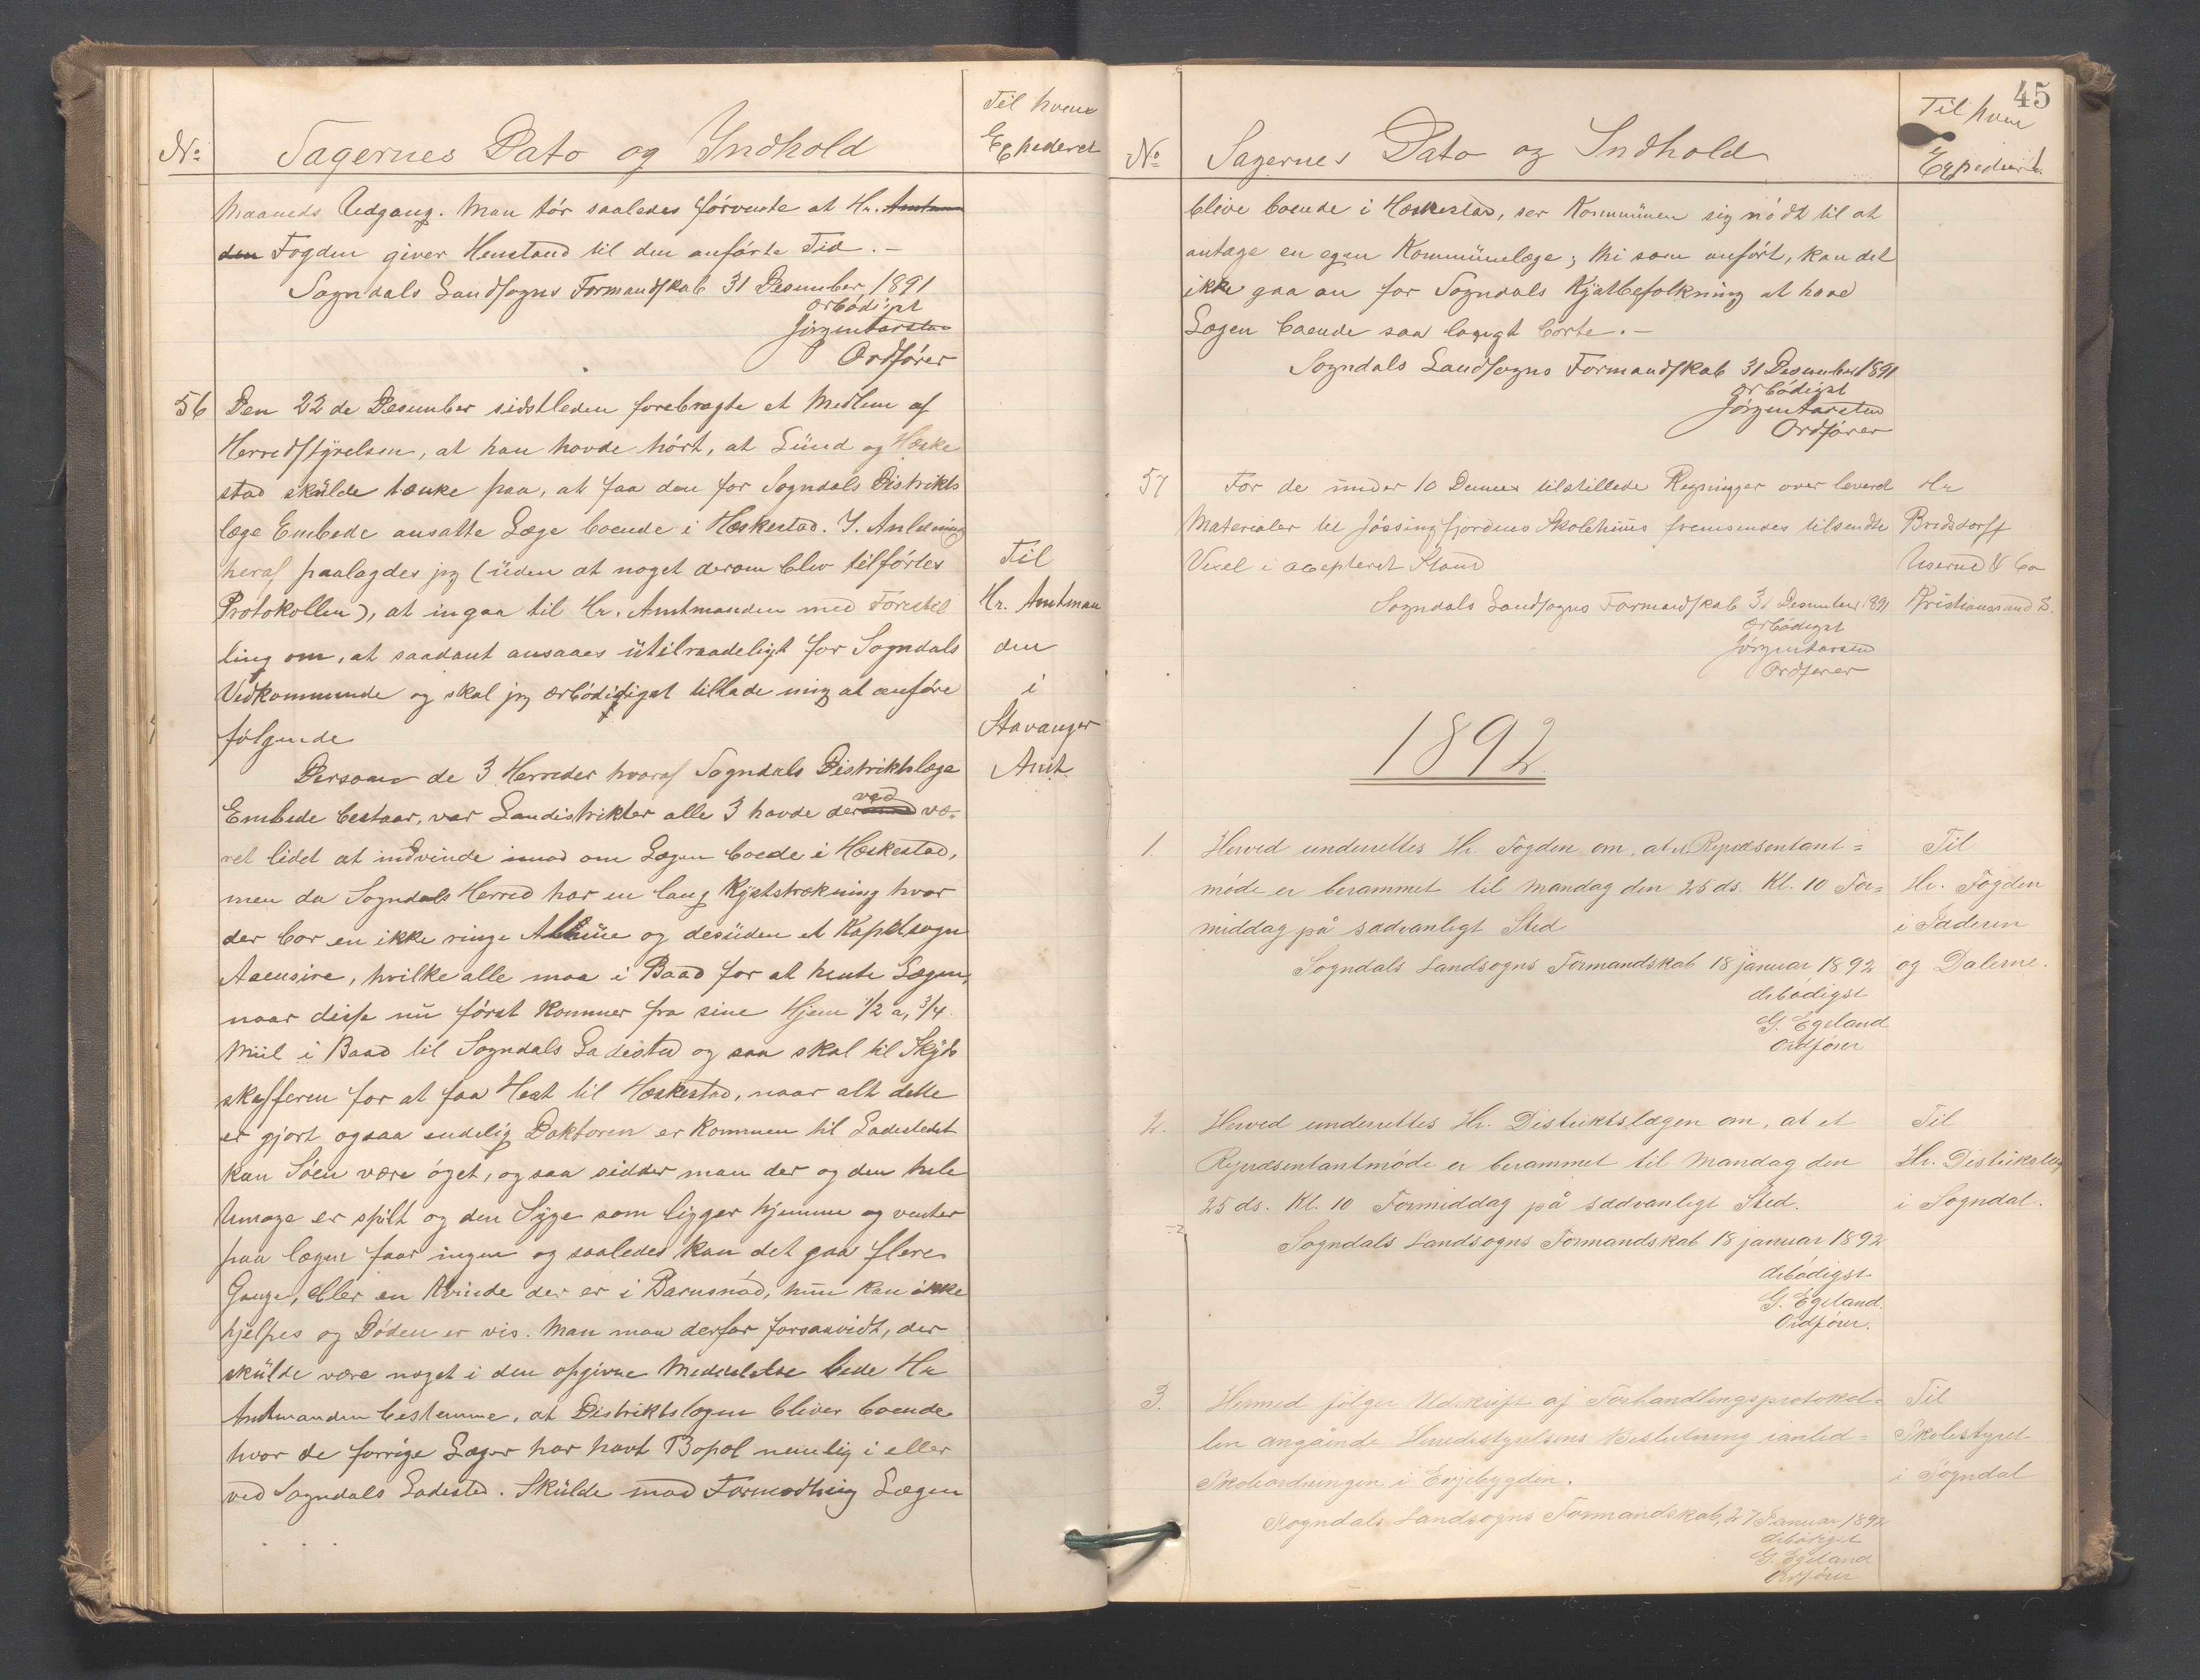 No
Sagernes Dato og Indhold
Til hvem
Expederet
Maaneds Udgang. Man tør saaledes forvente at Hr. Amtman
den Fogden giver Henstand til den anførte Tid. –
Sogndals Landsogns Formandskab 31 Desember 1891
ærbødigst
Jørgen Aarstad
Ordfører
56
Den 22de Desember sidstleden forebragte et Medlem af
Herredstyrelsen, at han havde hørt, at Lund og Heske
stad skulde tænke paa, at faa den for Sogndals Distrikts
læge Embede ansatte Læge boende i Heskestad. I Anledning
heraf paalagdes jeg (uden at noget derom blev tilførtes
Protokollen), at ingaa til Hr. Amtmanden med Forestel
ling om, at saadant ansaaes utilraadeligt for Sogndals
Vedkommende og skal jeg ærbødigst tillade mig at anføre
følgende
Til
Hr. Amtman
den
i
Stavanger
Amt
Dersom de 3 Herreder hvoraf Sogndals Distriktslæge
Embede bestaar, var Landistrikter alle 3 havde derved væ-
ret lidet at indvinde imod om Lægen boede i Heskestad,
men da Sogndals Herred har en lang Kyststrækning hvor
der bor en ikke ringe Almue og desuden et Kapelsogn
Aaensire, hvilke alle maa i Baad for at hente Lægen,
naar disse nu først kommer fra sine Hjem 1/2 a, 3/4
Miil i Baad til Sogndals Ladested og saa skal til Skyds
skafferen for at faa Hest til Heskestad, naar alt dette
er gjort ogsaa endelig Doktoren er kommen til Ladestedet
kan Søen være øget, og saa sidder man der og den hele
Umage er spilt og den Syge som ligger hjemme og venter
paa lægen faar ingen og saaledes kan det gaa flere
Gange, eller en Kvinde der er i Barnsnød, hun kan ikke
hjelpes og Døden er vis. Man maa derfor forsaavidt, der
skulde være noget i den opgivne Meddelelse bede Hr
Amtmanden bestemme, at Distriktslægen bliver boende
hvor de forrige Læger har havt Bopæl nemlig i eller
ved Sogndals Ladested. Skulde mod Formodning Lægen
45
No
Sagernes Dato og Indhold
Til hvem
Expederet
blive boende i Heskestad, ser Kommunen sig nødt til at
antage en egen Kommunelæge; thi som anført, kan det
ikke gaa an for Sogndals Kystbefolkning at have
Lægen boende saa langt borte. –
Sogndals Landsogns Formandskab 31 Desember 1891
ærbødigst
Jørgen Aarstad
Ordfører
57
For de under 10 Dennes tilstillede Regninger over leveret
Materialer til Jøssingfjordens Skolehuus fremsendes tilsendte
Vexel i acepteret Stand
Hr
Bredsdorff
& Co
Kristianssand S.
Sogndals Landsogns Formandskab 31 Desember 1891
ærbødigst
Jørgen Aarstad
Ordfører
1892
1.
Herved underrettes Hr. Fogden om, at et Repræsentant=
møde er berammet til Mandag den 25 ds. Kl. 10 For=
middag på sædvanligt Sted
Til
Hr. Fogden
i Jæderen
og Dalerne.
Sogndals Landsogns Formandskab 18 januar 1892
Ærbødigst
G. Egeland
Ordfører
2.
Herved underrettes Hr. Distriktslægen om, at et
Repræsentantmøde er berammet til Mandag den
25 ds. Kl. 10 Formiddag på sædvanligt Sted.
Til
Hr. Distriktslæg
i Sogndal.
Sogndals Landsogns Formandskab 18 januar 1892
Ærbødigst
G. Egeland.
Ordfører.
3.
Hermed følger Udskrift af Forhandlingsprotokol=
len angående Herredsstyrelsens Beslutning ianled=
Skoleordningen i Evjebygden.
Til
Skolestyret
i Sogndal
Sogndals Landsogns Formandskab, 27 Januar 1892
Ærbødigst
G. Egeland
Ordfører